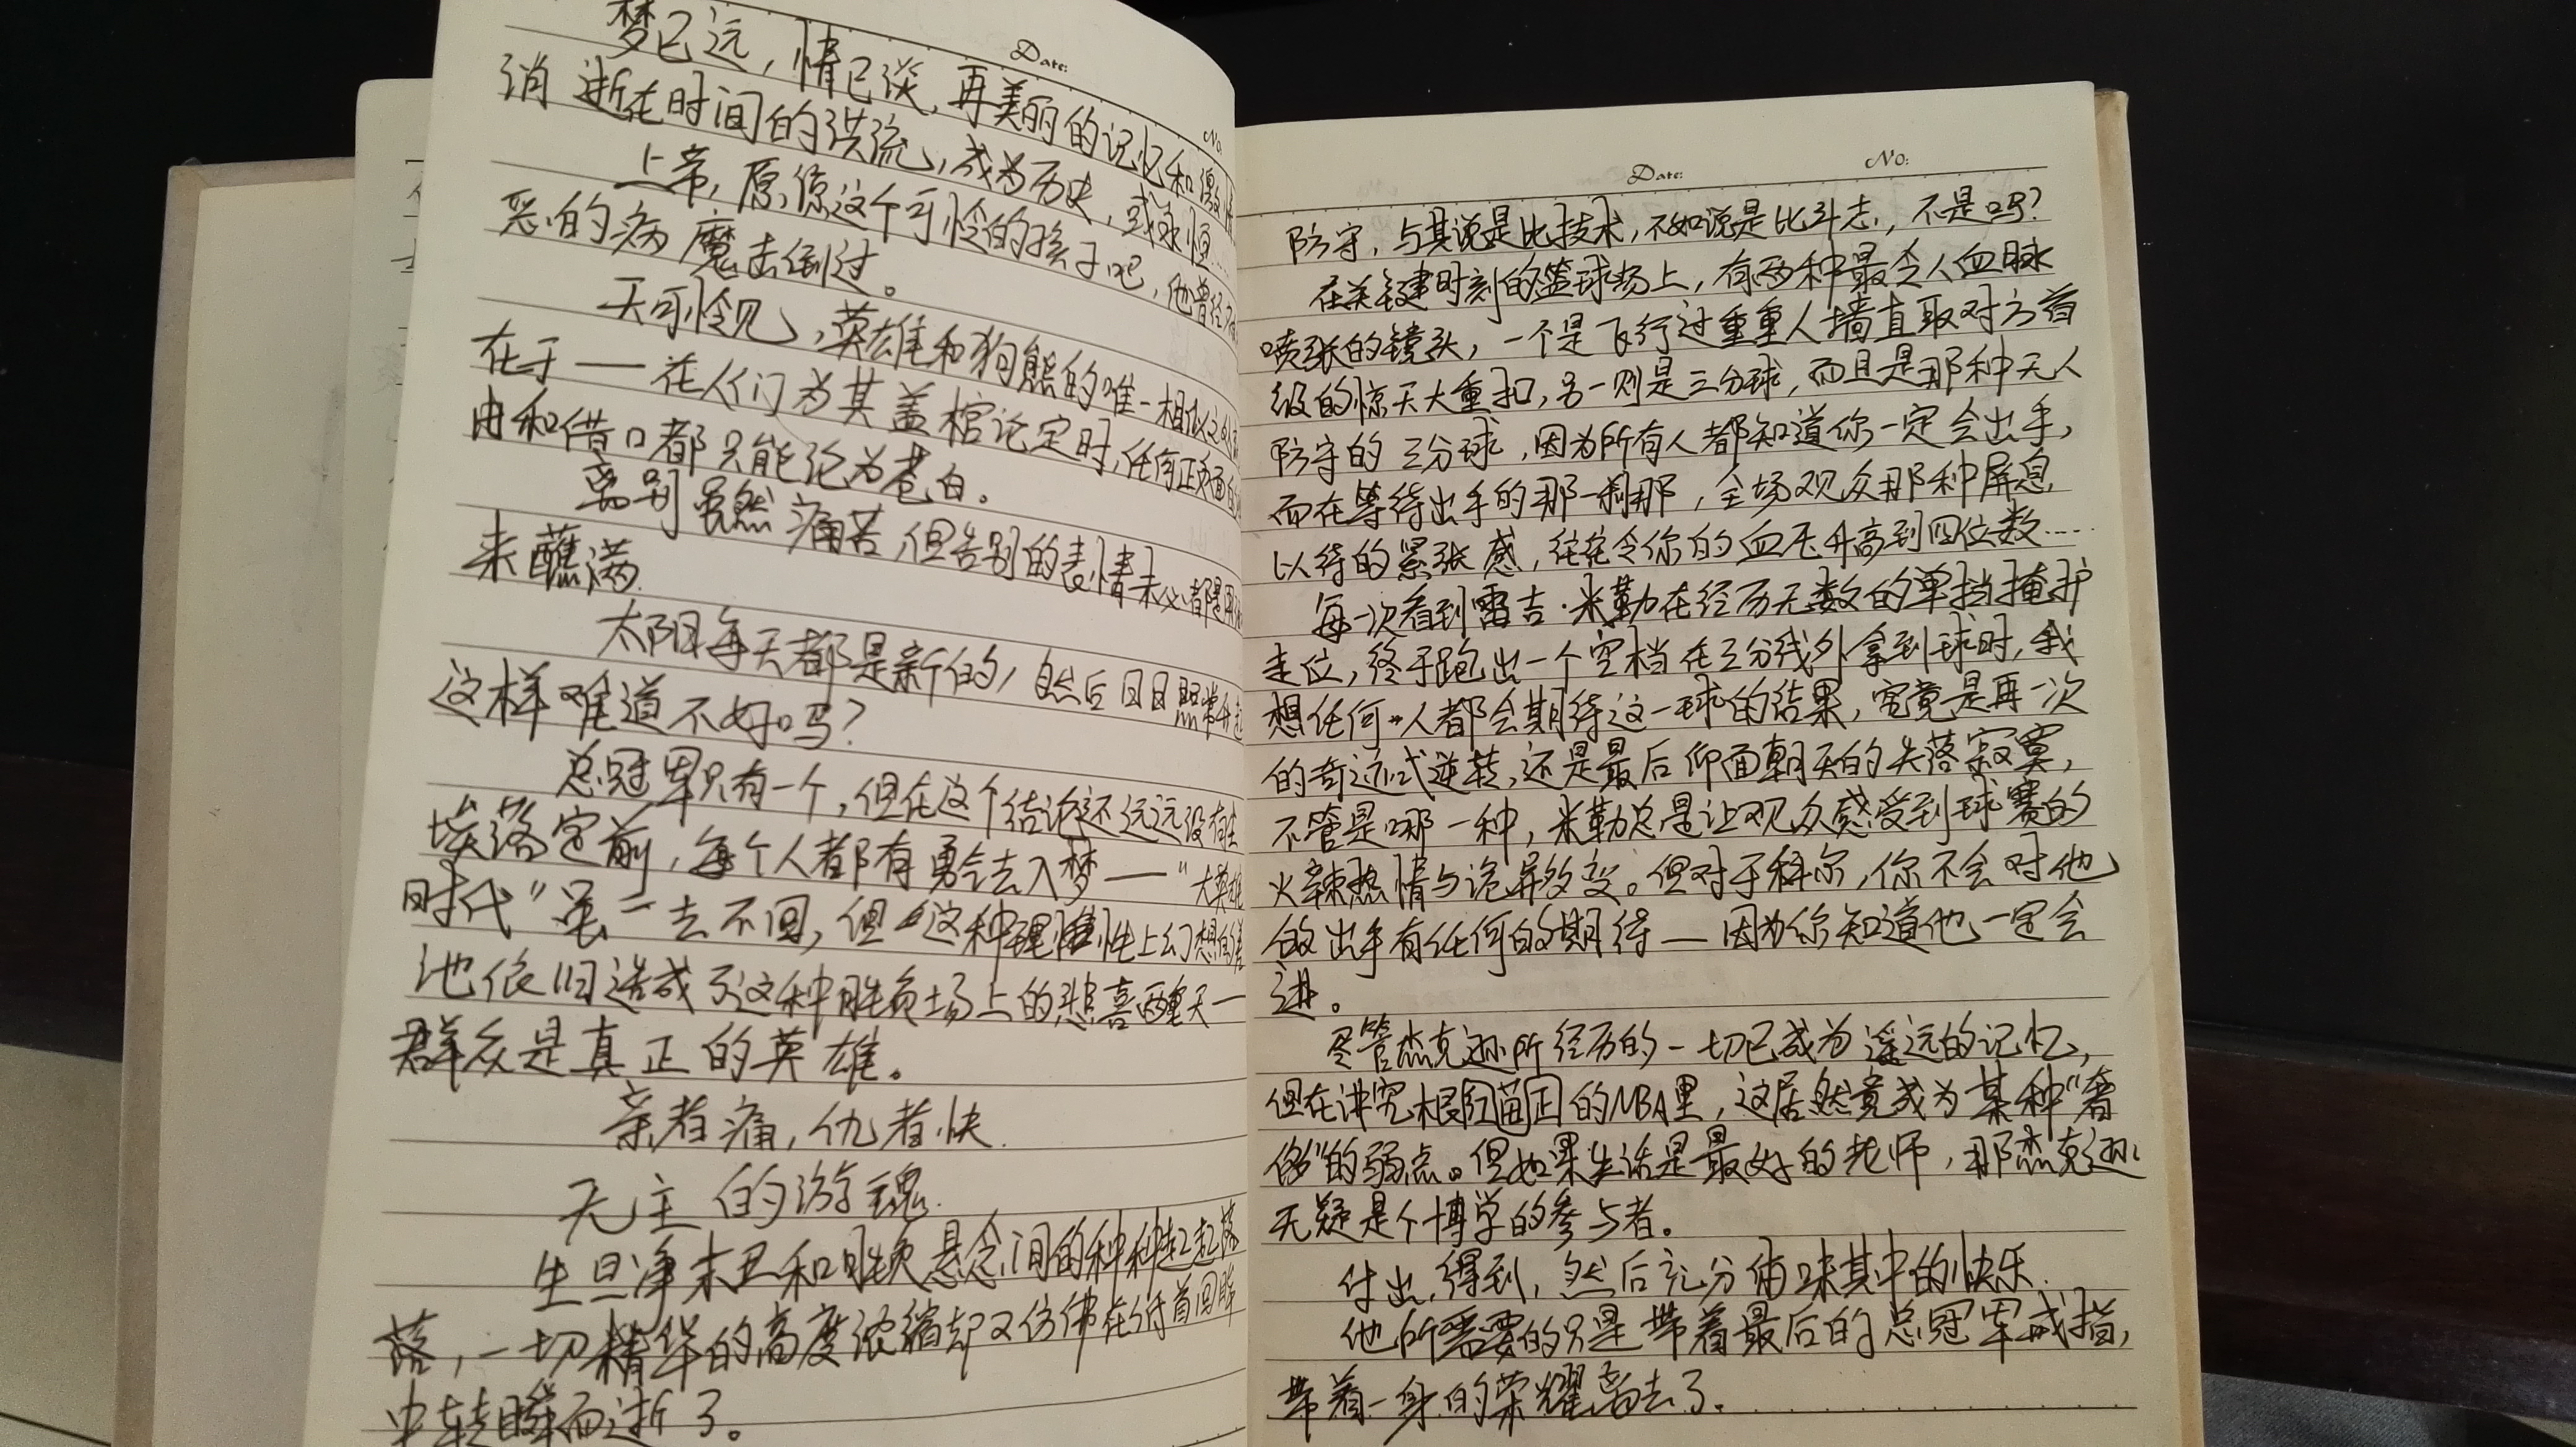 Date:
No.
梦已远，情已淡，再美丽的记忆和激情
消逝在时间的洪流，成为历史，或永恒……
上帝，原谅这个可怜的孩子吧，他曾经
恶的病魔击倒过。
天可怜见，英雄和狗熊的唯一相似之处
在于——在人们为其盖棺论定时，任何正负面的
由和借口都只能沦为苍白。
离别虽然痛苦，但告别的表情未必都是用
来蘸满.
太阳每天都是新的，自然后日日照常升起
这样难道不好吗？
总冠军只有一个，但在这个结论还远远没有尘
埃落定前，每个人都有勇气去入梦——“大英雄
时代”虽一去不回，但这种理性上幻想的
池依旧造成了这种胜负场上的悲喜两重天—
群众是真正的英雄。
亲者痛，仇者快.
无主的游魂.
生旦净末丑和胜负悬念间的种种起起落
落，一切精华的高度浓缩却又仿佛在俯首回眸
中转瞬而逝了。
Date:
No:
防守，与其说是比技术，不如说是比斗志，不是吗？
在关键时刻的篮球场上，有两种最令人血脉
喷张的镜头，一个是飞行过重重人墙直取对方首
级的惊天大重扣，另一则是三分球，而且是那种无人
防守的三分球，因为所有人都知道你一定会出手，
而在等待出手的那一刹那，全场观众那种屏息
以待的紧张感，往往令你的血压升高到四位数……
每一次看到雷吉·米勒在经历无数的单挡掩护
走位，终于跑出一个空档在三分线外拿到球时，我
想任何一人都会期待这一球的结果，究竟是再一次
的奇迹式逆转，还是最后仰面朝天的失落寂寞，
不管是哪一种，米勒总是让观众感受到球赛的
火辣热情与诡异多变。但对于科尔，你不会对他
的出手有任何的期待——因为你知道他一定会
进。
尽管杰克逊所经历的一切已成为遥远的记忆，
但在讲究根红苗正的NBA里，这居然竟成为某种“奢
侈”的弱点。但如果生活是最好的老师，那杰克逊
无疑是个博学的参与者。
付出，得到，然后充分体味其中的快乐.
他所需要的只是带着最后的总冠军戒指，
带着一身的荣耀离去了。